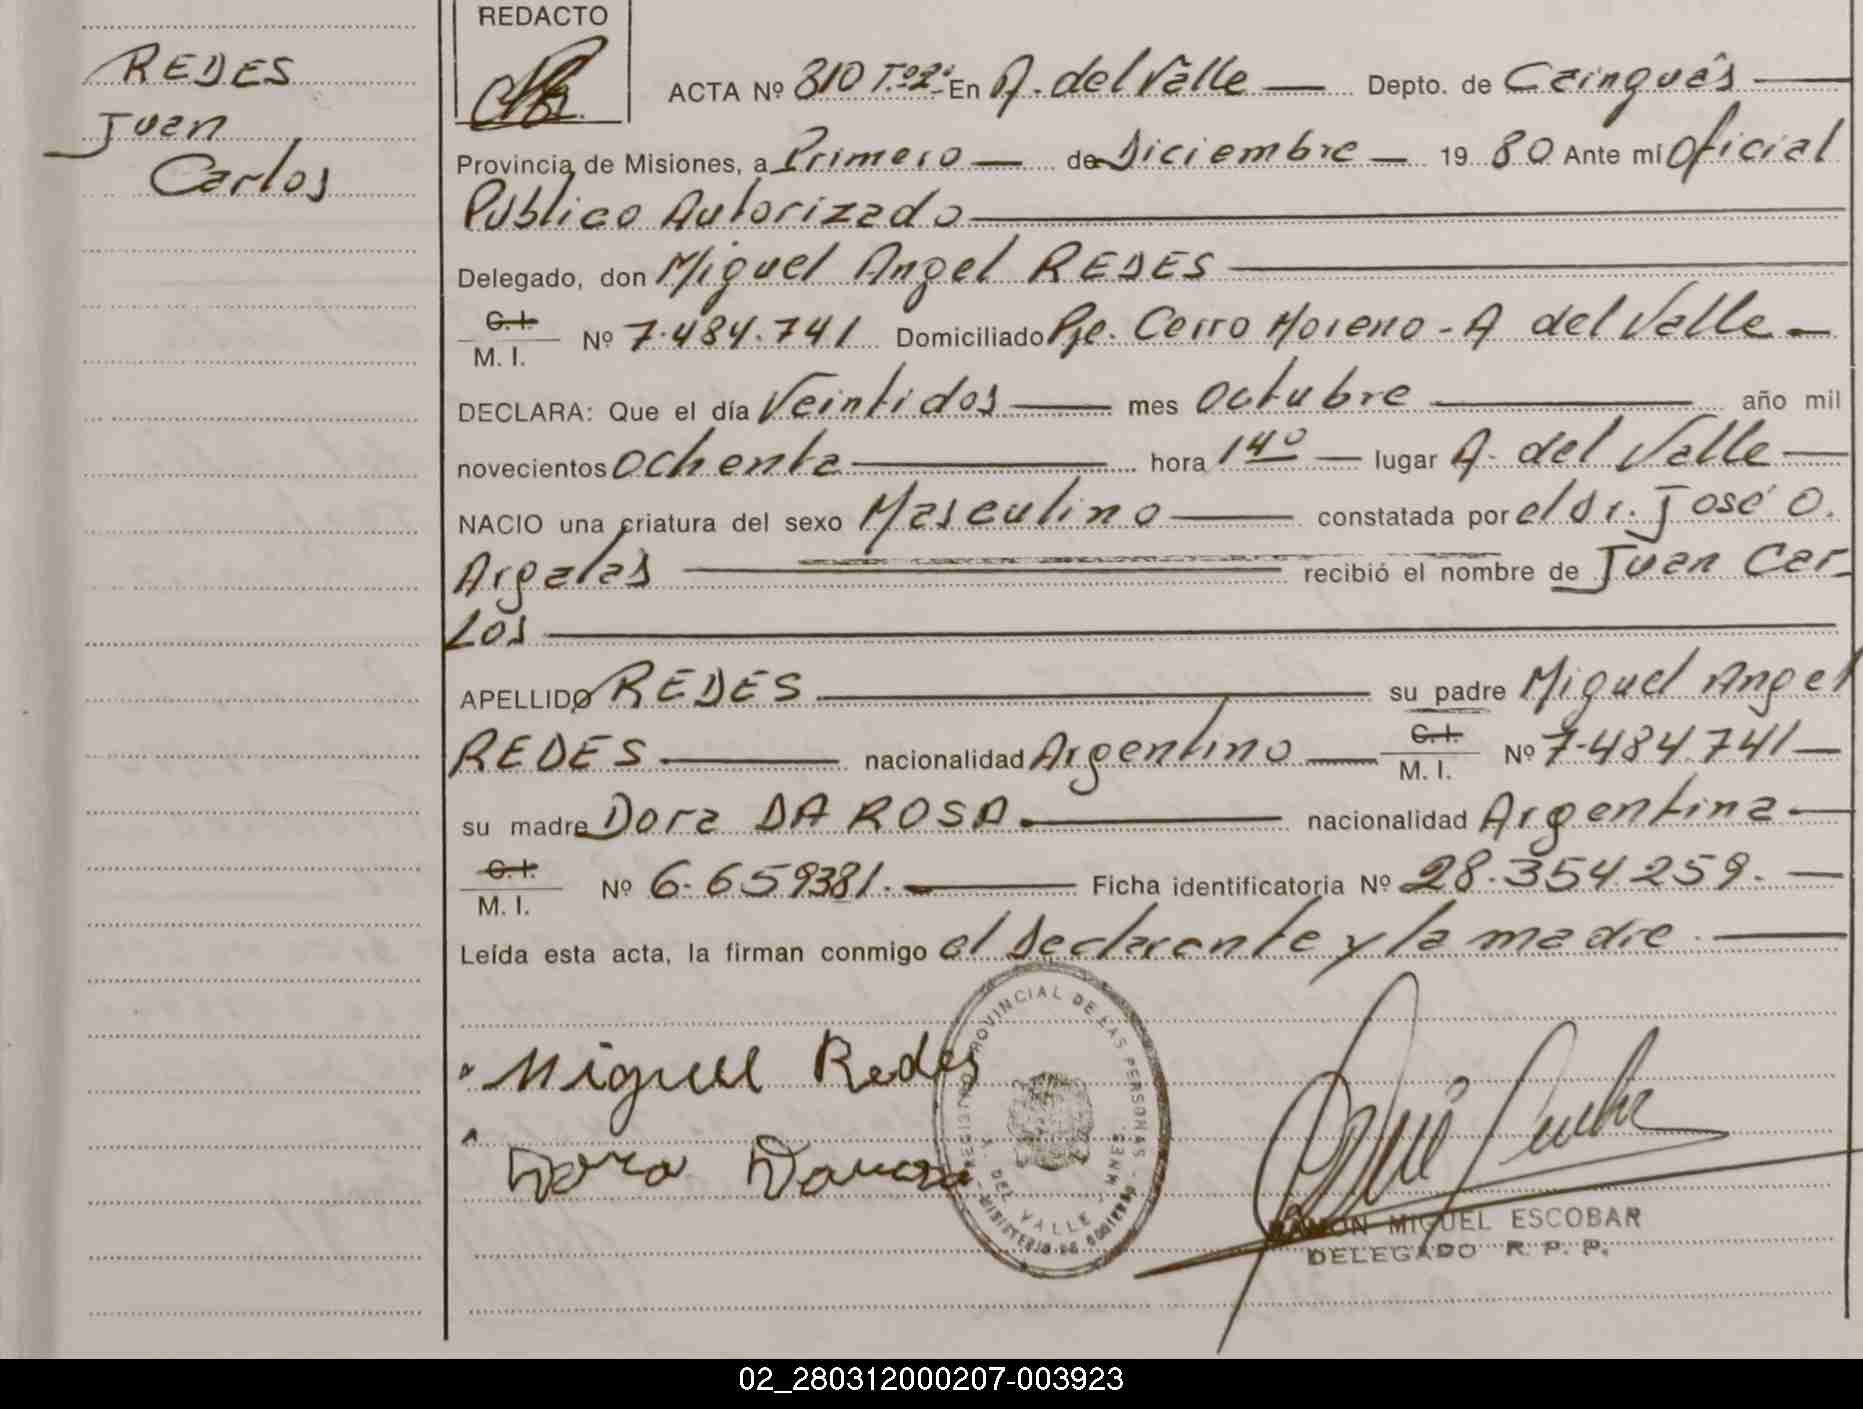 REDES
Juan
Carlos
REDACTO
ACTA Nº 810 Tº 2º En A. del Valle — Depto. de Cainguás —
Provincia de Misiones, a Primero — de Diciembre — 1980 Ante mi Oficial
Público Autorizado
Delegado, don Miguel Angel REDES
C.I.
M. I. Nº 7.484.741 Domiciliado Pje. Cerro Moreno - A del Valle —
DECLARA: Que el día Veintidos — mes Octubre — año mil
novecientos Ochenta — hora 14º — lugar A. del Valle —
NACIO una criatura del sexo Masculino — constatada por el Dr. José O.
Argalas — recibió el nombre de Juan Car-
Los —
APELLIDO REDES — su padre Miguel Angel
REDES — nacionalidad Argentino — C.I.
M. I. Nº 7.484.741 —
su madre Dora DA ROSA — nacionalidad Argentina —
C.I.
M. I. Nº 6.659381. — Ficha identificatoria Nº 28.354.259. —
Leída esta acta, la firman conmigo el Declarante y la madre. —
Miguel Redes
Dora
REGISTRO PROVINCIAL DE LAS PERSONAS
A. DEL VALLE - MNES
MINISTERIO DE GOBIERNO
RAMON MIGUEL ESCOBAR
DELEGADO R. P. P.
02_280312000207-003923